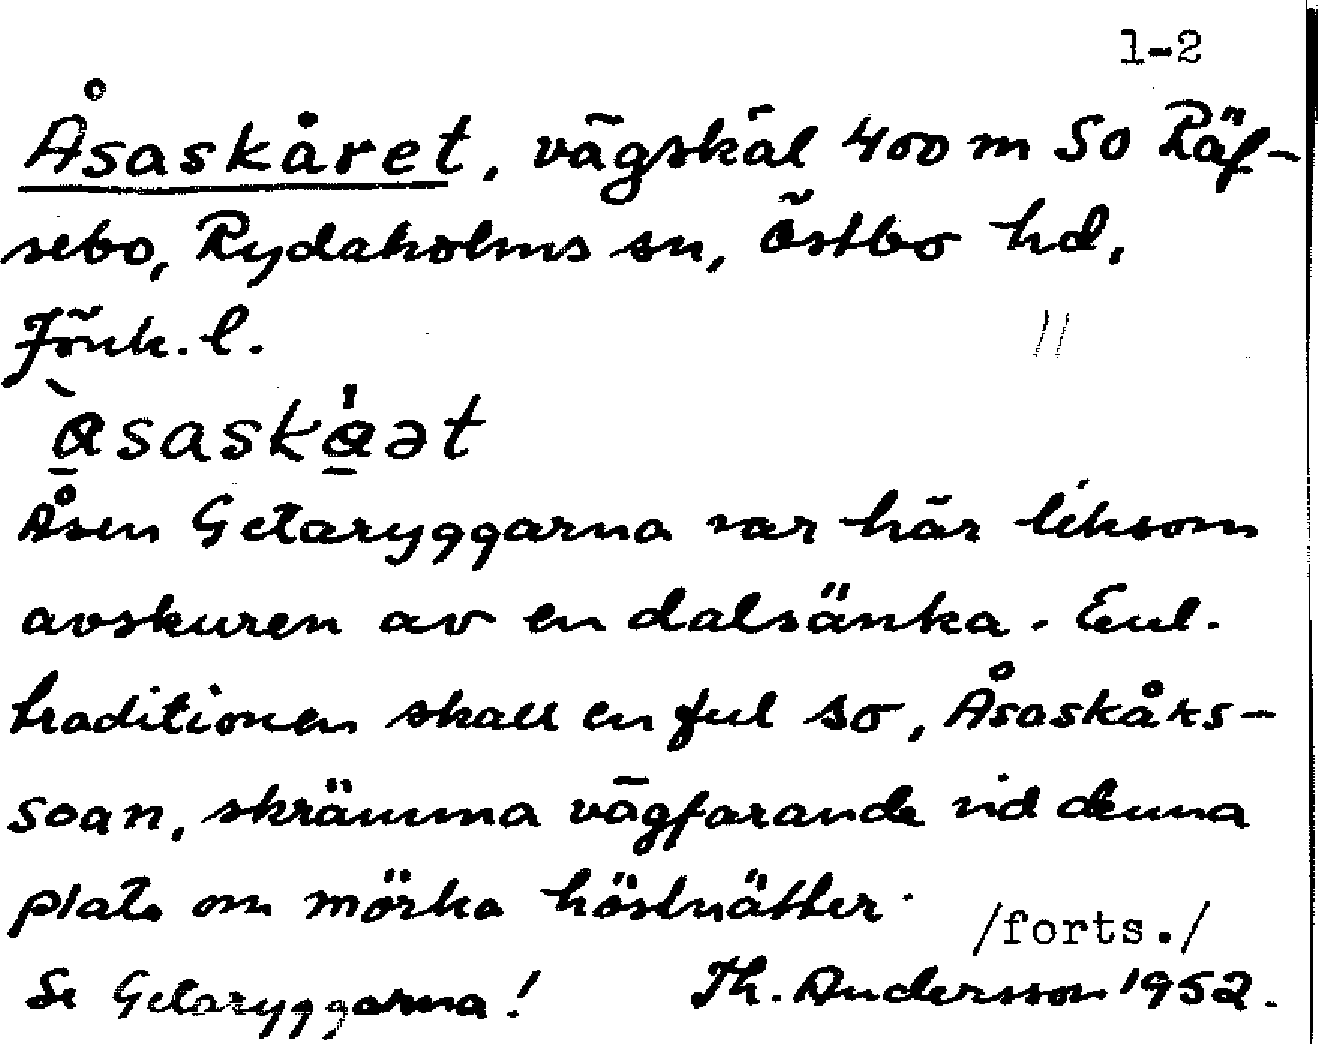 1-2
Åsaskåret, vägskäl 400 m SO Räf-
sebo, Rydaholms sn, Östbo hd,
Jönk. l.
Åsen Getaryggarna var här liksom
avskuren av en dalsänka. Enl.
traditionen skall en ful so, Åsaskårs-
soan, skrämma vägfarande vid denna
plats om mörka höstnätter.
/forts./
Se Getaryggarna! Th. Andersson 1952.